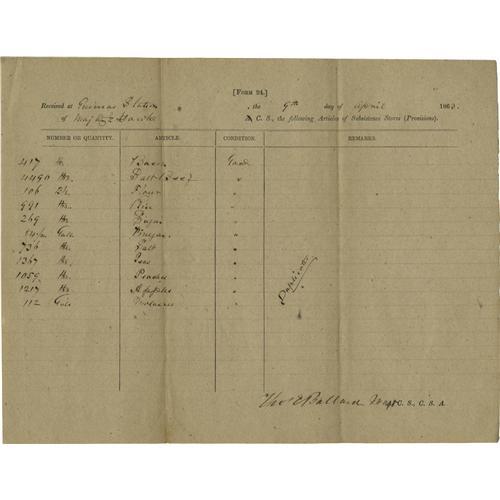 [FORM 24.]
Received at Guinea Station , the 9th day of April 1863.
of Maj A. C. S., the following Articles of Subsistence Stores (Provisions).
NUMBER OR QUANTITY. ARTICLE. CONDITION. REMARKS.
417 lbs Bacon Good
4490 lbs Salt Beef "
106 Bbls Flour "
991 lbs Rice "
269 lbs Sugar "
Galls Vinegar "
736 lbs Salt "
1367 lbs Peas "
1059 lbs Peaches "
1217 lbs Apples "
112 Galls Molasses "
Duplicate
Thos E Ballard Maj & C. S., C. S. A.